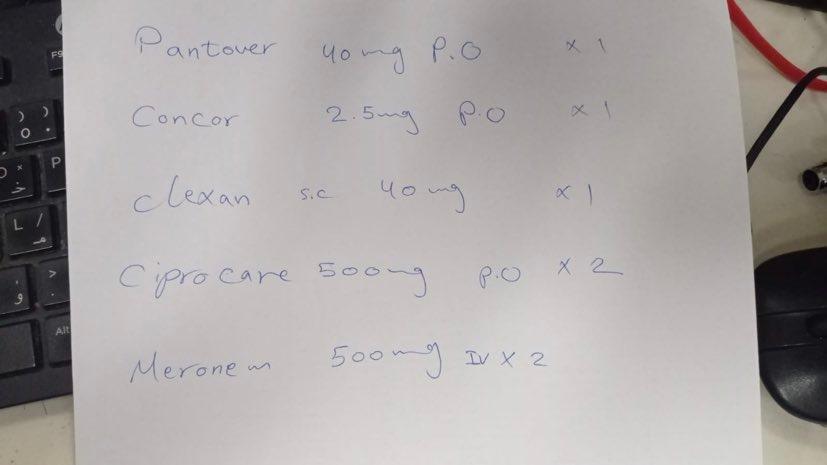 Pantover 40mg P.O x 1
Concor 2.5mg P.O x 1
clexan s.c 40mg x 1
Ciprocare 500mg P.O x 2
Meronem 500mg IV x 2